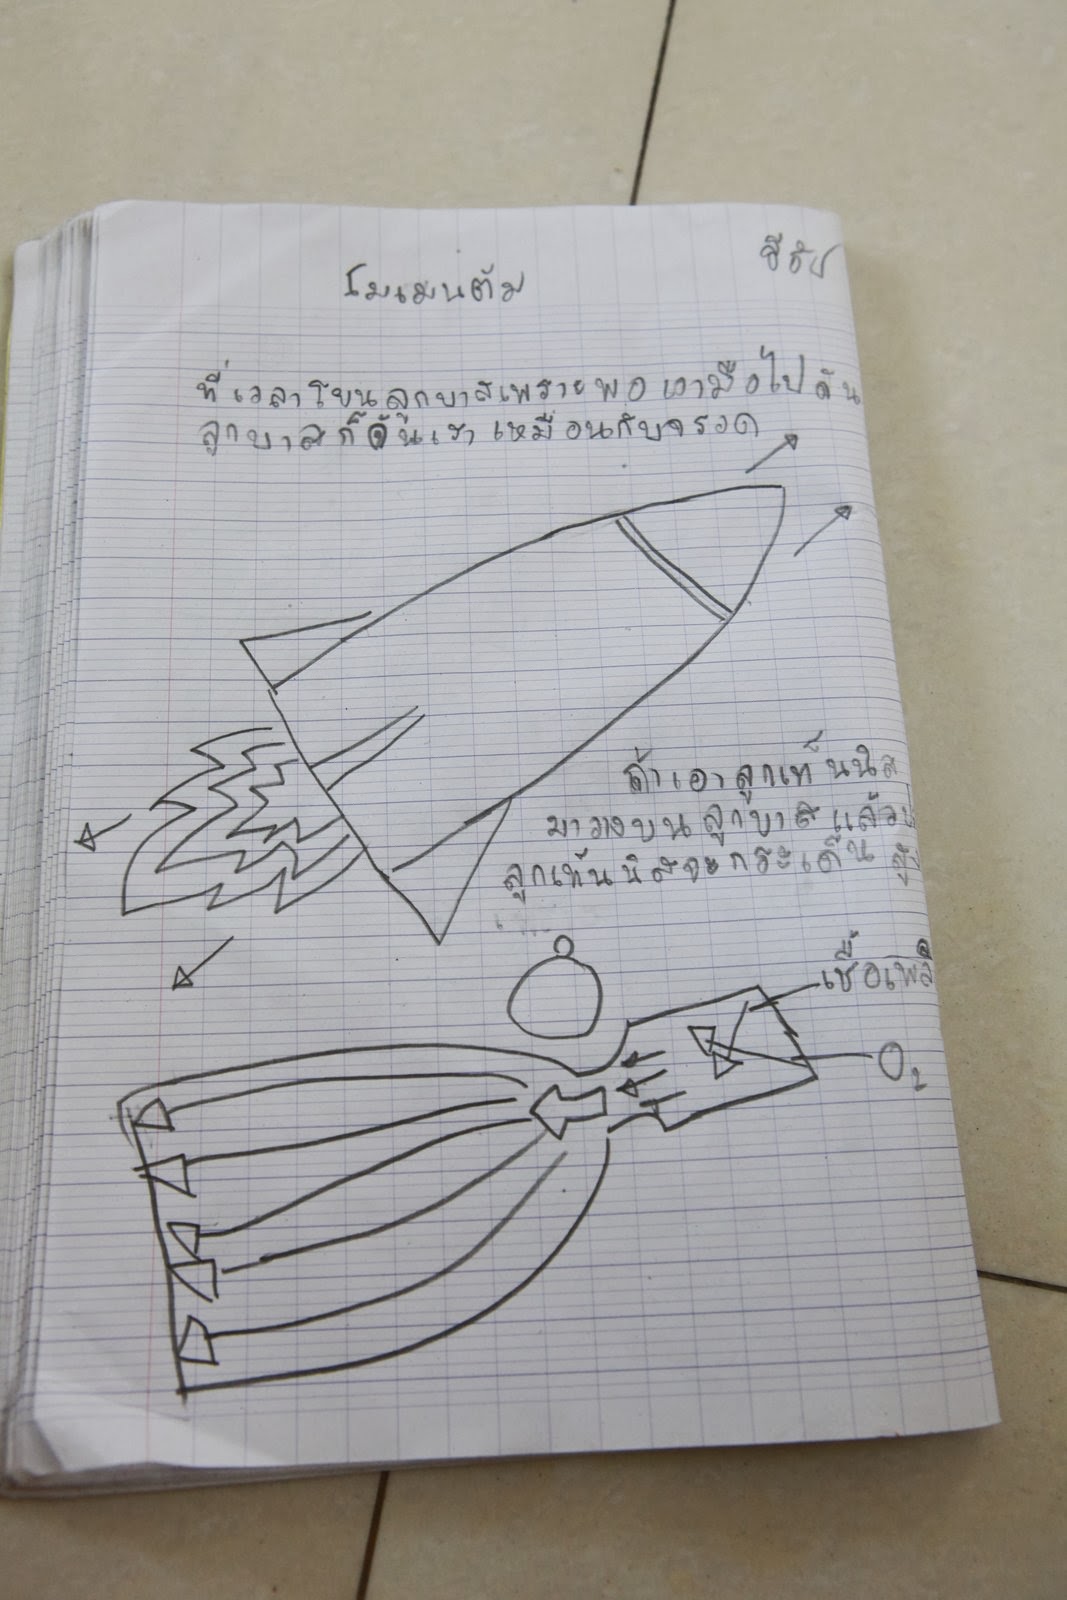 โมเมนตัม
ที่เวลาโยนลูกบาสเพราะพอเอามือไปดัน
ลูกบาสก็ดันเรา เหมือนกับจรวด
ถ้าเอาลูกเท็นนิส
มาวางบนลูกบาสแล้ว
ลูกเท็นนิสจะกระเด็น
O2